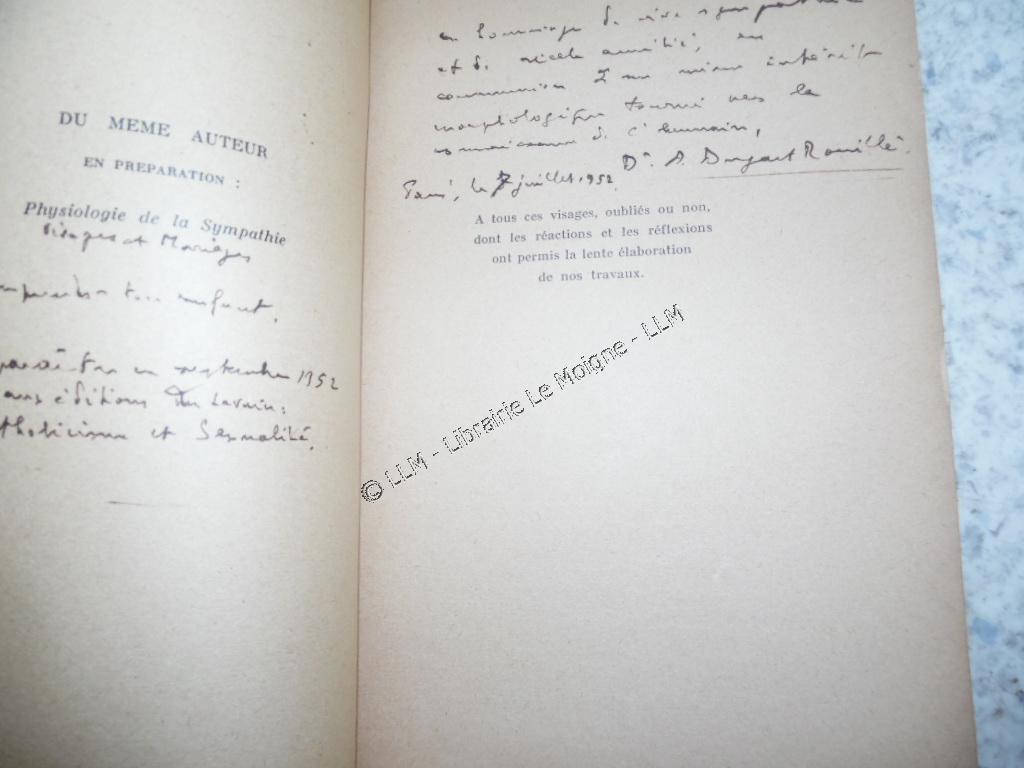 DU MEME AUTEUR
EN PREPARATION :
Physiologie de la Sympathie
Visages et Mariages
ton enfant.
paraître en septembre 1952
aux éditions du Levain :
et Sexualité.
en hommage de vive sympathie
et de vieille amitié, en
communion d'un même intérêt
morphologique tourné vers la
connaissance de l'humain,
Paris, le 7 juillet 1952. Dr.
A tous ces visages, oubliés ou non,
dont les réactions et les réflexions
ont permis la lente élaboration
de nos travaux.
© LLM - Librairie Le Moigne - LLM